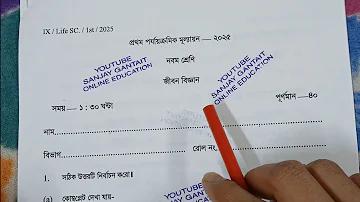 IX / Life SC. / 1st / 2025
প্রথম পর্যায়ক্রমিক মূল্যায়ন — ২০২৫
নবম শ্রেণি
জীবন বিজ্ঞান
সময় — ১ : ৩০ ঘন্টা পূর্ণমান —৪০
নাম
বিভাগ রোল নং
1. সঠিক উত্তরটি নির্বাচন করো।
(a) কোষপ্লেট দেখা যায়-
YOUTUBE
SANJAY GANTAIT
ONLINE EDUCATION
YOUTUBE
SANJAY GANTAIT
ONLINE EDUCATION
YOUTUBE
SANJAY GANTAIT